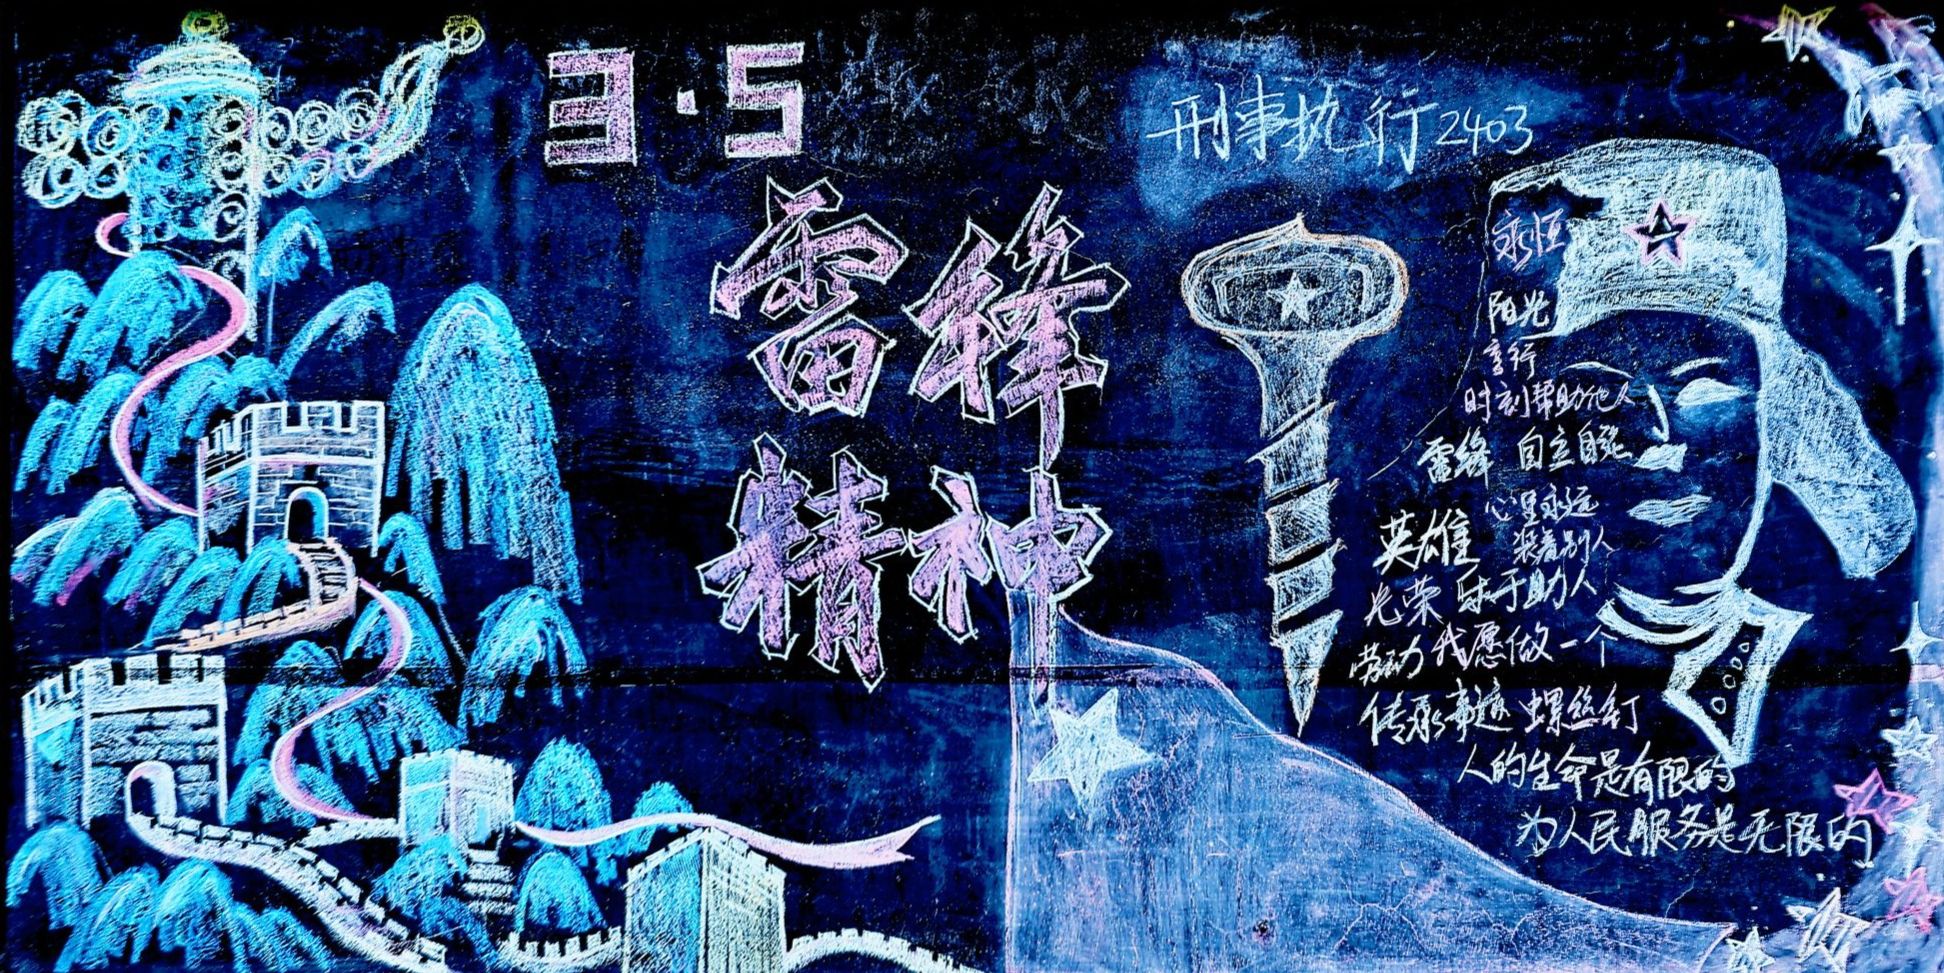 3·5
刑事执行2403
雷锋
精神
永恒
阳光
言行
时刻帮助他人
雷锋 自立自强
心里永远
英雄 装着别人
光荣 乐于助人
劳动 我愿做一个
传承事迹 螺丝钉
人的生命是有限的
为人民服务是无限的